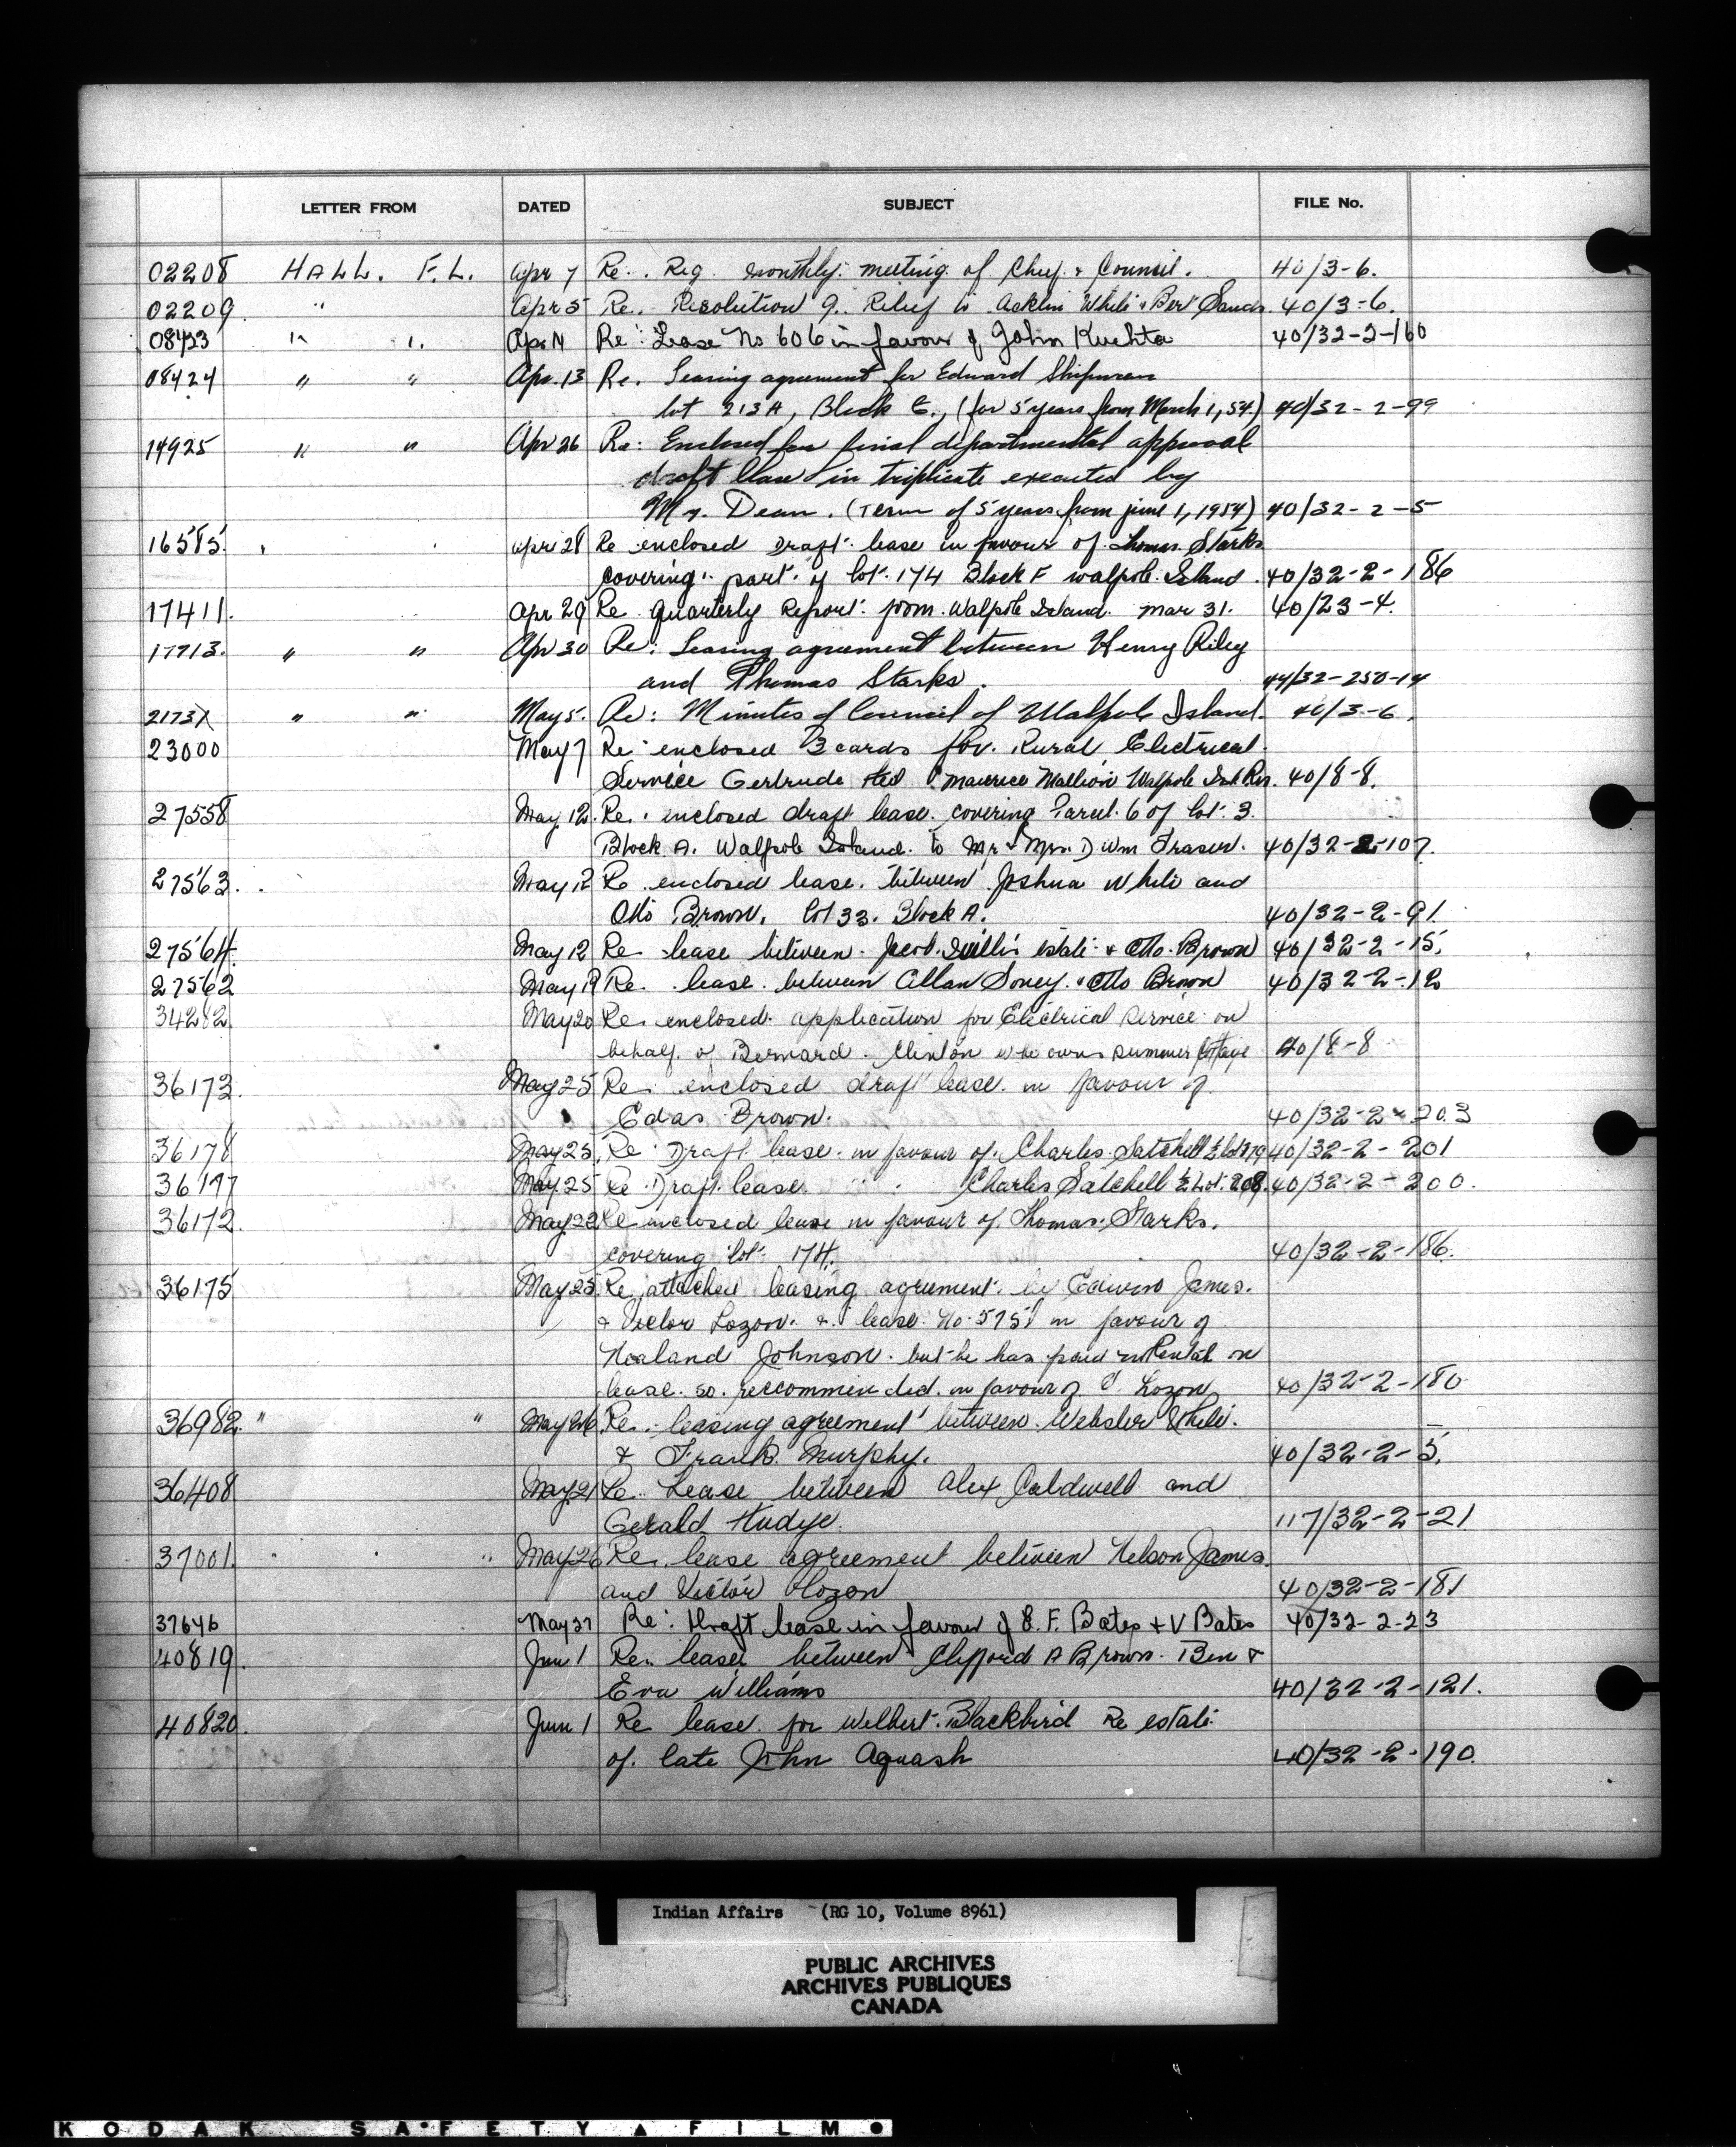 LETTER FROM DATED SUBJECT FILE No.
02208 HALL. F.L. Apr 7 Re. Reg monthly meeting of Chief & Council. 40/3-6.
02209 " Apr 5 Re. Resolution 9. Relief to White & Bert 40/3-6.
08423 " " Apr 14 Re: Lease No 606 in favour of John Kuchta 40/32-2-160
08424 " " Apr. 13 Re. Leasing agreement for Edward
lot 213A, Block E., (for 5 years from March 1, 54.) 40/32-2-99
14925 " " Apr 26 Re: Enclosed for final departmental approval
draft lease in triplicate executed by
Mr. Dean. (Term of 5 years from June 1, 1954) 40/32-2-5
16585. Apr 28 Re enclosed Draft lease in favour of Thomas Starks
covering part of lot 174 Block F Walpole Island. 40/32-2-186
17411. Apr 29 Re Quarterly Report from Walpole Island. Mar 31. 40/23-4.
17713. " " Apr 30 Re: Leasing agreement between Henry Riley
and Thomas Starks. 44/32-250-14
2173 " " May 5. Re: Minutes of Council of Walpole Island. 40/3-6.
23000 May 7 Re enclosed 3 cards for Rural Electrical
Service Gertrude Maurice Walpole Isl Res. 40/8-8.
27558 May 12. Re. enclosed draft lease covering Parcel 6 of lot 3.
Block A. Walpole Island. to Mr & Mrs. D Wm Fraser. 40/32-2-107.
27563. May 12 Re enclosed lease between Joshua White and
Otto Brown. lot 33. Block A. 40/32-2-91.
27564. May 12 Re lease between Jacob estate & Otto Brown 40/32-2-15.
27562 May 19 Re. lease between Allan Soney & Otto Brown 40/32-2-12
34282 May 20 Re enclosed application for Electrical Service on
behalf of Bernard Clinton who owns summer cottage 40/8-8
36173. May 25 Re enclosed draft lease in favour of
Brown. 40/32-2-203
36178 May 25. Re Draft lease in favour of Charles Satchell 40/32-2-201
36177 May 25 Re Draft lease " " Charles Satchell ½ Lot. 208. 40/32-2-200.
36172. May 22 Re enclosed lease in favour of Thomas Starks.
covering lot 174. 40/32-2-186.
36175 May 25 Re attached leasing agreement by James.
& Victor Lozon. & lease No. 5751 in favour of
Johnson but he has paid no Rental on
lease so reccommended in favour of V. Lozon 40/32-2-180
36982. " " May 26 Re. leasing agreement between Webster White
& Frank Murphy. 40/32-2-5.
36408 May 21 Re Lease between Alex Caldwell and
Gerald 117/32-2-21
37001. " " May 26 Re lease agreement between Nelson James
and Victor Lozon 40/32-2-181
37646 May 27 Re: Draft lease in favour of E. F. Bates & V Bates 40/32-2-23
40819. Jun 1 Re. lease between Clifford A Brown Ben &
Eva Williams 40/32-2-121.
40820. Jun 1 Re lease for Welbert Blackbird Re estate
of late John Aquash 40/32-2-190.
Indian Affairs (RG 10, Volume 8961)
PUBLIC ARCHIVES
ARCHIVES PUBLIQUES
CANADA
KODAK SAFETY FILM